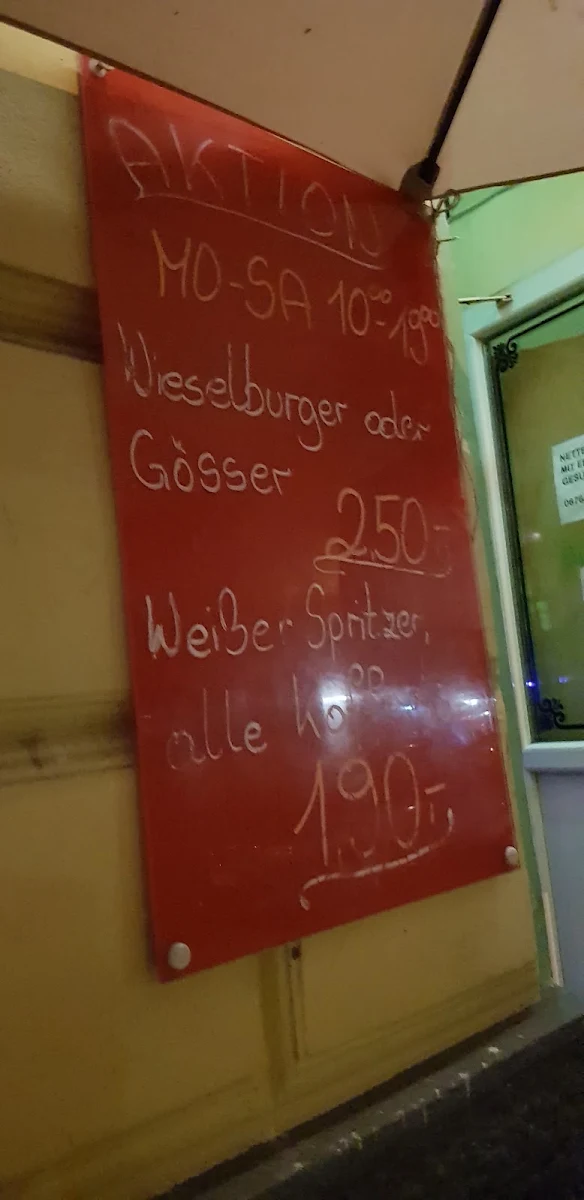 AKTION
MO-SA 10⁰⁰-19⁰⁰
Wieselburger oder
Gösser
2,50,-
Weißer Spritzer,
alle
1,90,-
NETTE
MIT